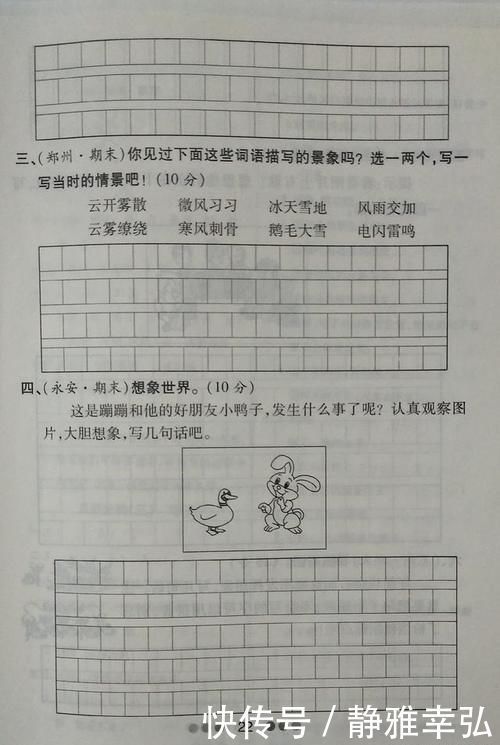 三、(郑州·期末)你见过下面这些词语描写的景象吗?选一两个,写一
写当时的情景吧!(10分)
云开雾散 微风习习 冰天雪地 风雨交加
云雾缭绕 寒风刺骨 鹅毛大雪 电闪雷鸣
四、(永安·期末)想象世界。(10分)
这是蹦蹦和他的好朋友小鸭子,发生什么事了呢?认真观察图
片,大胆想象,写几句话吧。
22
快传号/静雅幸弘